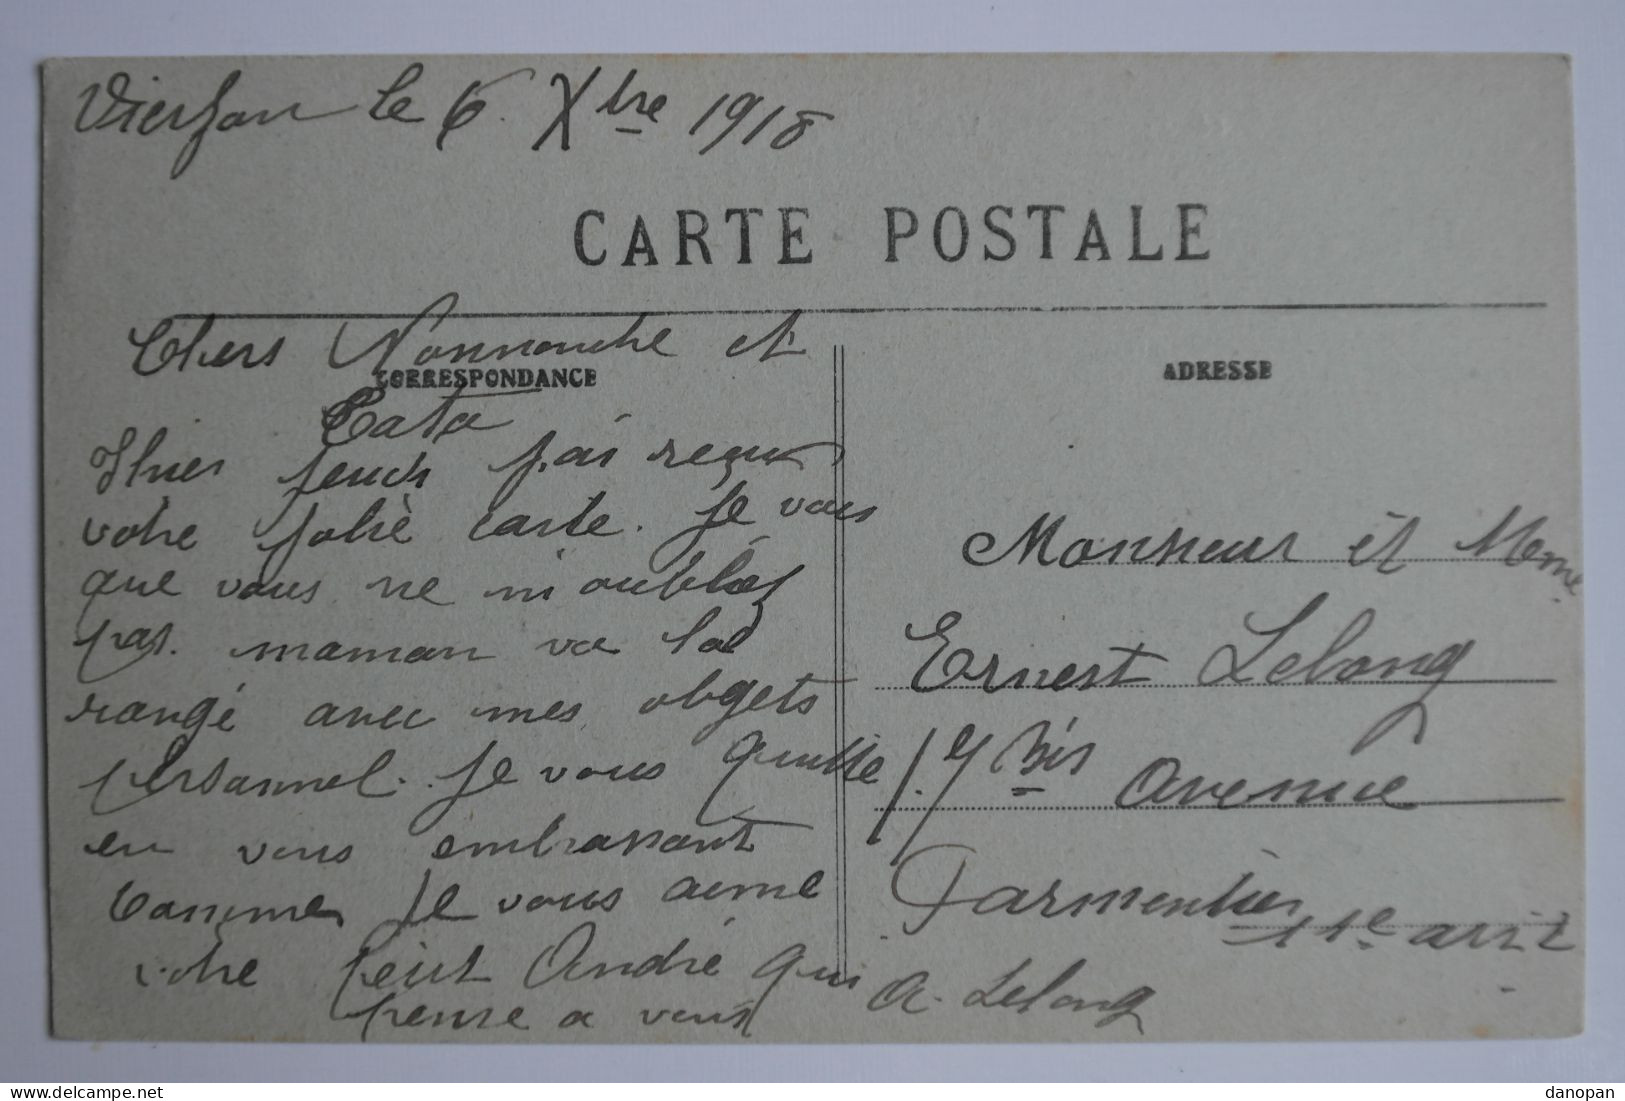 Vierzon le 6 Xbre 1918
CARTE POSTALE
Chers Nonnonche et
CORRESPONDANCE
Tata
Hier jeudi j'ai reçu
votre jolie carte. Je vois
que vous ne m'oubliez
pas. maman va la
rangé avec mes obgets
personnel. Je vous quitte
en vous embrassant
comme je vous aime
votre petit André qui
pense a vous
A. Lelong
ADRESSE
Monsieur et Mme
Ernest Lelong
17 Bis Avenue
Parmentier
11e arrt
danopan
delcampe.net